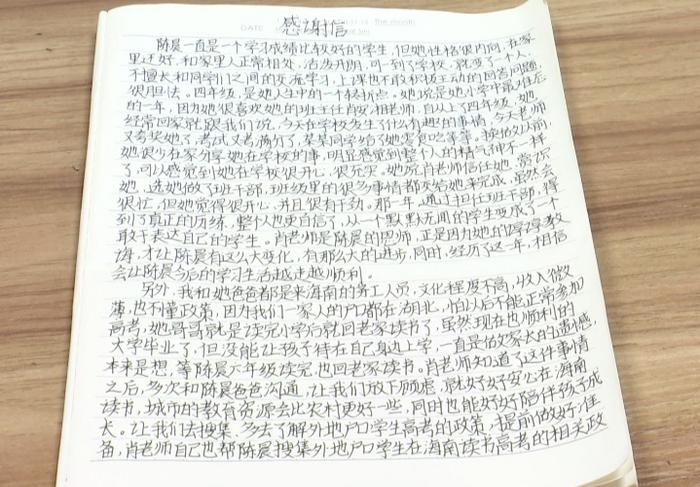 DATE
the month
感谢信
陈晨一直是一个学习成绩比较好的学生,但她性格很内向,在家
里还好,和家里人正常相处,活泼开朗,可一到了学校,就变了一个人,
不擅长和同学们之间的交流学习,上课也不敢积极主动的回答问题,
很胆怯。四年级,是她人生中的一个转折点。她说是她小学中最难忘
的一年,因为她很喜欢她的班主任肖安相老师,自从上了四年级,她
经常回家就跟我们说,今天在学校发生了什么有趣的事情,今天老师
又夸奖她了,考试又考满分了,某某同学给了她零食吃等等。换做以前,
她很少在家分享她在学校的事,明显感觉到整个人的精气神不一样
了,可以感觉到她在学校很开心,很充实。她说肖老师信任她,赏识
她,选她做了班干部,班级里的很多事情都交给她来完成,虽然会
很忙,但她觉得很开心,并且很有干劲。那一年,通过担任班干部,得
到了真正的历练,整个人也更自信了,从一个默默无闻的学生变成了一个
敢于表达自己的学生。肖老师是陈晨的恩师,正是因为她的谆谆教
诲,才让陈晨有这么大变化,有那么大的进步,同时,经历了这一年,相信
会让陈晨今后的学习生活越走越顺利。
另外,我和她爸爸都是来海南的务工人员,文化程度不高,收入微
薄,也不懂政策,因为我们一家人的户口都在湖北,怕以后不能正常参加
高考,她哥哥就是读完小学后就回老家读书了,虽然现在也顺利的
大学毕业了,但没能让孩子待在自己身边上学,一直是做家长的遗憾,
本来是想,等陈晨六年级读完,也回老家读书。肖老师知道了这件事情
之后,多次和陈晨爸爸沟通,让我们放下顾虑,就好好安心在海南
读书,城市的教育资源会比农村更好一些,同时也能好好陪伴孩子成
长。让我们去搜集、多去了解外地户口学生高考的政策,提前做好准
备,肖老师自己也帮陈晨搜集外地户口学生在海南读书高考的相关政